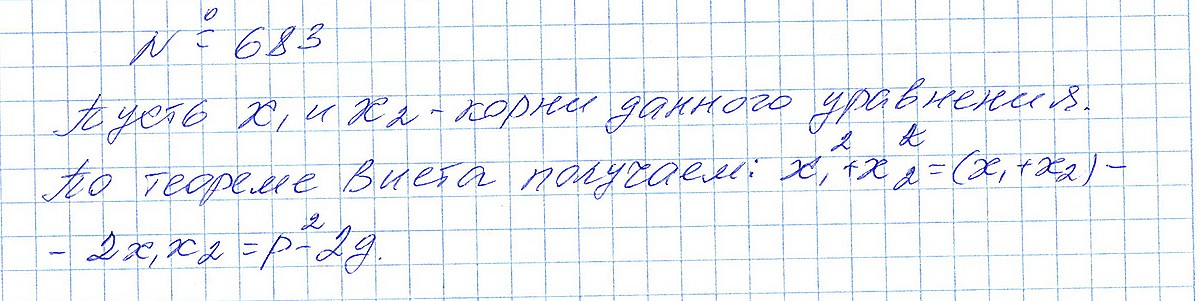 № 683
Пусть x₁ и x₂ - корни данного уравнения.
По теореме Виета получаем: x₁² + x₂² = (x₁ + x₂) -
- 2x₁x₂ = p² - 2g.